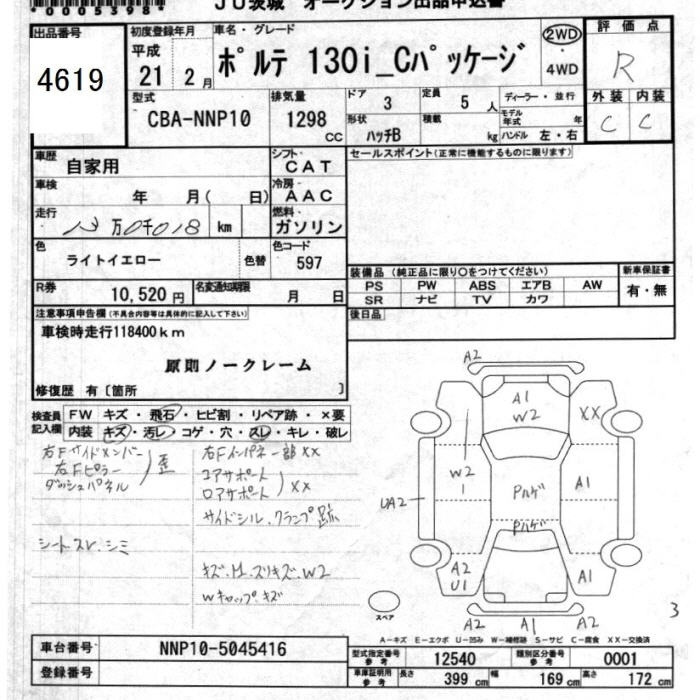 *00053984*
JU茨城 オークション出品申込書
出品番号 4619
初度登録年月 平成 21 2月
車名・グレード ポルテ 130i_Cパッケージ
2WD ・ 4WD
評価点 R
外装 C 内装 C
型式 CBA-NNP10
排気量 1298 CC
ドア 3 定員 5 人
形状 ハッチB 積載 kg
ディーラー・並行
モデル年式 年
ハンドル 左・右
車歴 自家用
シフト CAT
セールスポイント(正常に機能するものに限ります)
車検 年 月( 日)
冷房 AAC
走行 万0千018 km
燃料 ガソリン
色 ライトイエロー 色替
色コード 597
R券 10,520円
名変通知期限 月 日
装備品(純正品に限り○をつけてください)
PS PW ABS エアB AW
SR ナビ TV カワ
新車保証書 有・無
後日品
注意事項申告欄(不具合内容等は具体的に記入して下さい)
車検時走行118400km
原則ノークレーム
修復歴 有〔箇所 〕
検査員記入欄
FW キズ・飛石・ヒビ割・リペア跡・×要
内装 キズ・汚レ・コゲ・穴・スレ・キレ・破レ
右Fサイドメンバー
右Fピラー
ダッシュパネル
歪
シートスレ.シミ
右Fインパネ一部XX
コアサポート
ロアサポート
XX
サイドシル.クランプ跡
キズ.凹.スリキズ.W2
Wキャップ.キズ
A2
A1
W2
XX
W2
1
UA2
Pルゲ
A1
Pルゲ
A2
U1
A1
A2 A1 A2
スペア
3
A-キズ E-エクボ U-凹み W-補修跡 S-サビ C-腐食 XX-交換済
車台番号 NNP10-5045416
登録番号
型式指定番号 参考 12540
類別区分番号 参考 0001
車庫証明用 参考 長さ 399 cm 幅 169 cm 高さ 172 cm